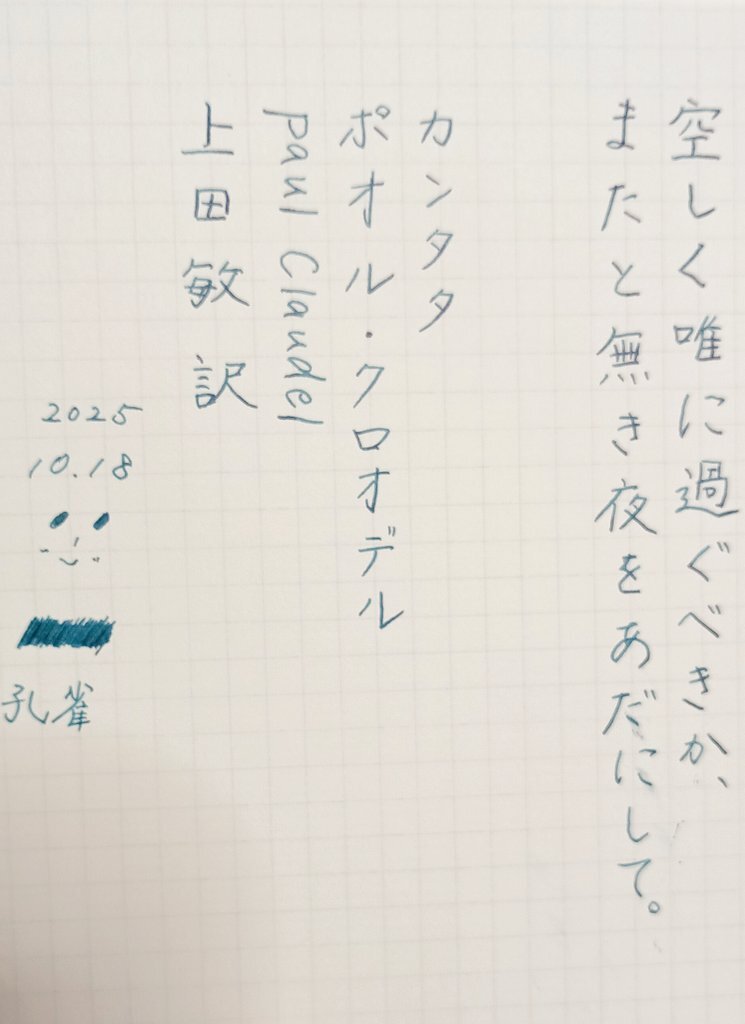 空しく唯に過ぐべきか、
またと無き夜をあだにして。
カンタタ
ポオル・クロオデル
Paul Claudel
上田敏訳
2025
10.18
孔雀